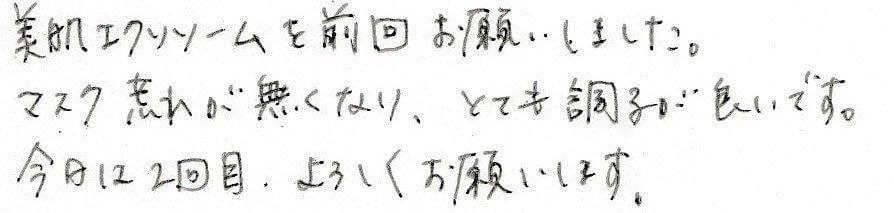 美肌エクソソームを前回お願いしました。
マスク荒れが無くなり、とても調子が良いです。
今日は2回目、よろしくお願いします。